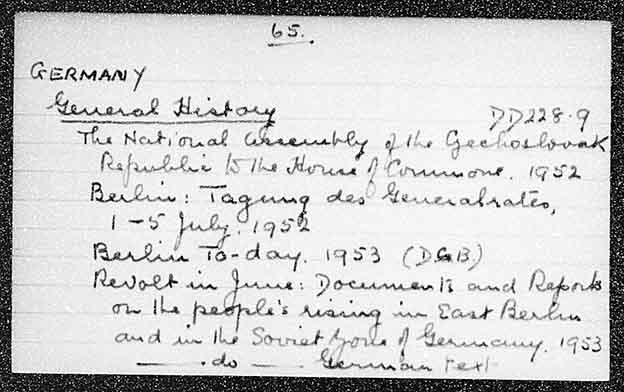 65.
GERMANY
General History DD228.9
The National Assembly of the Czechoslovak
Republic to the House of Commons. 1952
Berlin: Tagung des Generalrates,
1-5 July. 1952
Berlin To-day. 1953 (DGB)
Revolt in June: Documents and Reports
on the people's rising in East Berlin
and in the Soviet Zone of Germany. 1953
— do — German text